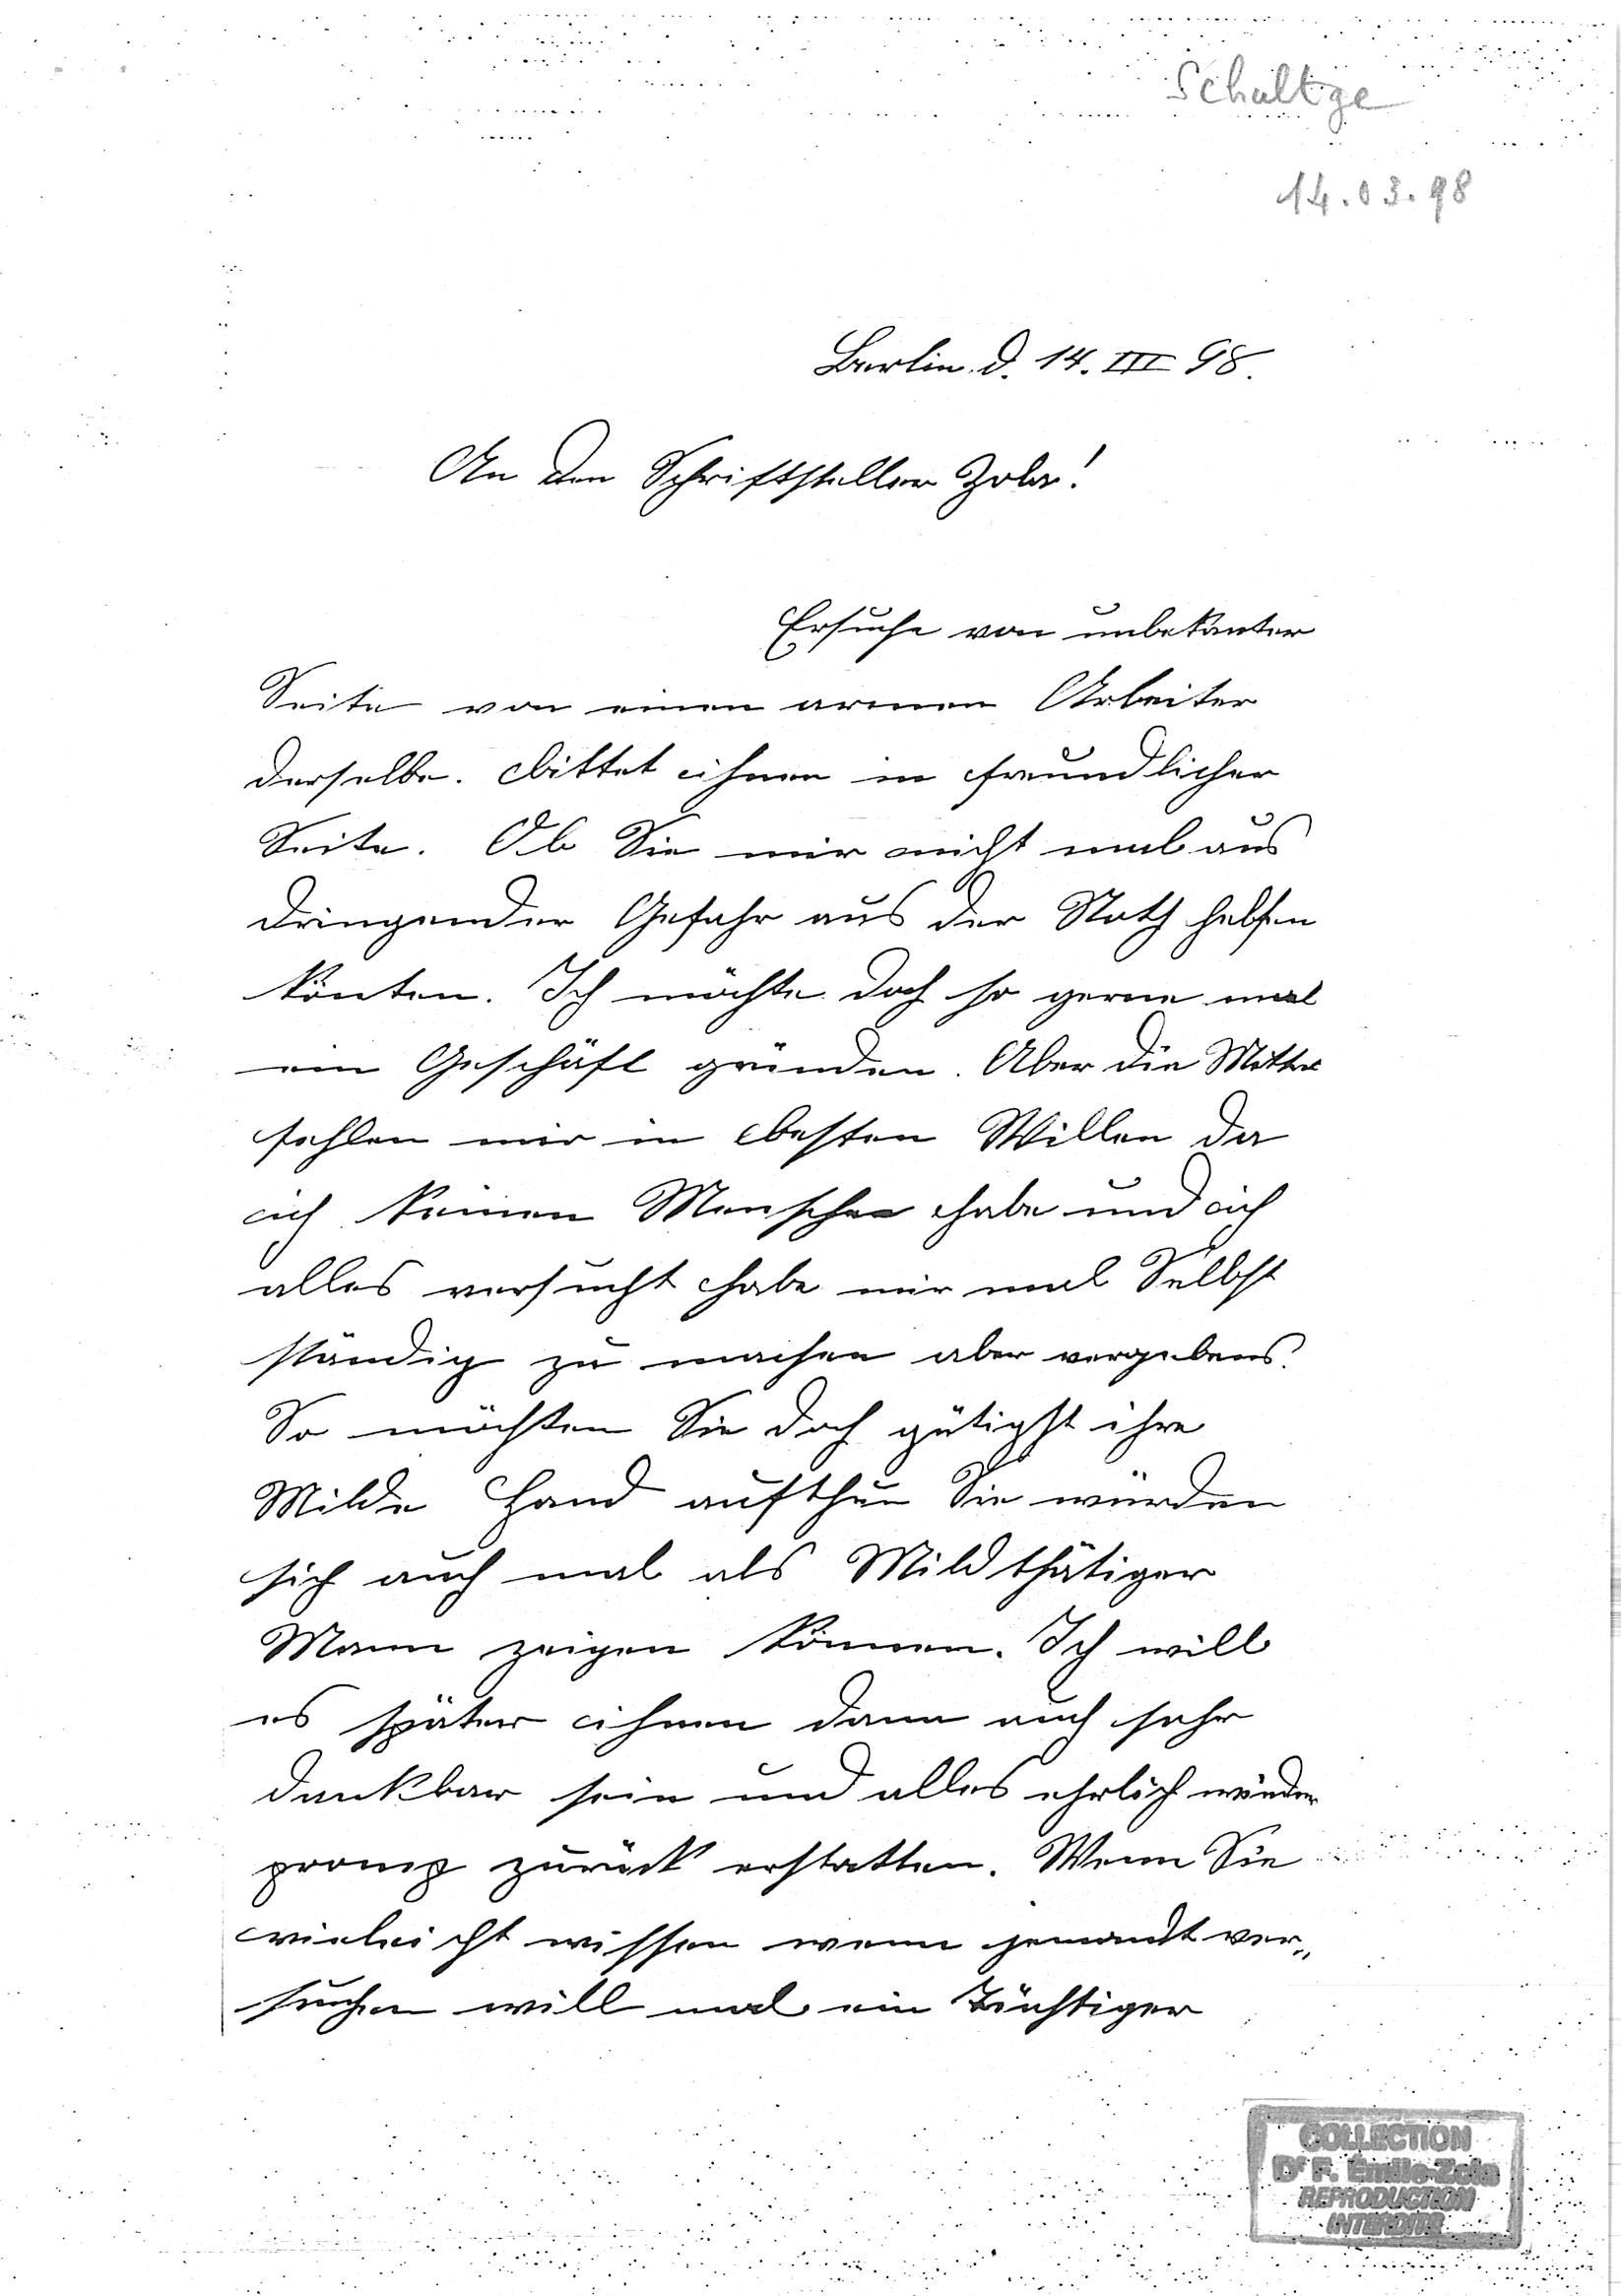 Schultze
14.03.98
Berlin d. 14. III 98.
An den Schriftsteller Zola!
Ersuche von unbekanter
Seite von einen armen Arbeiter
derselbe. bittet ihnen in freundlicher
Seite. Ob Sie mir nicht mal aus
dringender Gefahr aus der Noth helfen
könten. Ich möchte doch so gerne mal
ein Geschäft gründen. Aber die Mittel
fehlen mir in besten Willen da
ich keinen Menschen habe und ich
alles versucht habe mir mal Selbst
ständig zu machen aber vergebens.
So möchten Sie doch gütigst ihre
Milde Hand aufthun Sie würden
sich auch mal als Mildthätiger
Mann zeigen können. Ich will
es später ihnen dann auch sehr
dankbar sein und alles ehrlich wieder
promp zurück erstatten. Wenn Sie
vieleicht wissen wenn jemandt ver„
suchen will mal ein Tüchtiger
COLLECTION
Dr F. Émile-Zola
REPRODUCTION
INTERDITE